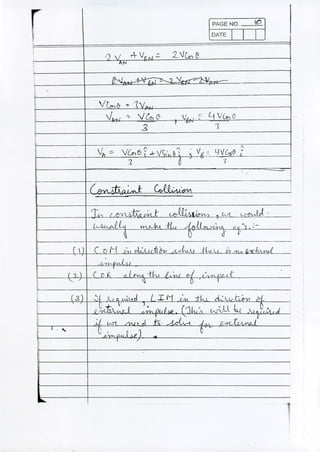 PAGE NO. 10
DATE
2 V_AN + V_BN = 2 V Cos θ
V Cos θ = 3 V_AN
V_AN = V Cos θ / 3 , V_BN = 4 V Cos θ / 3
V_A = V Cos θ / 3 î + V Sin θ ĵ ; V_B = 4 V Cos θ / 3 î
Constraint Collision
In constraint collisions, we would
usually make the following eqⁿs :-
(1) COM in direction where there is no external
impulse
(2) COR along the line of impact.
(3) if required, LIM in the direction of
external impulse. (This will be required
if we need to solve for external
impulse)